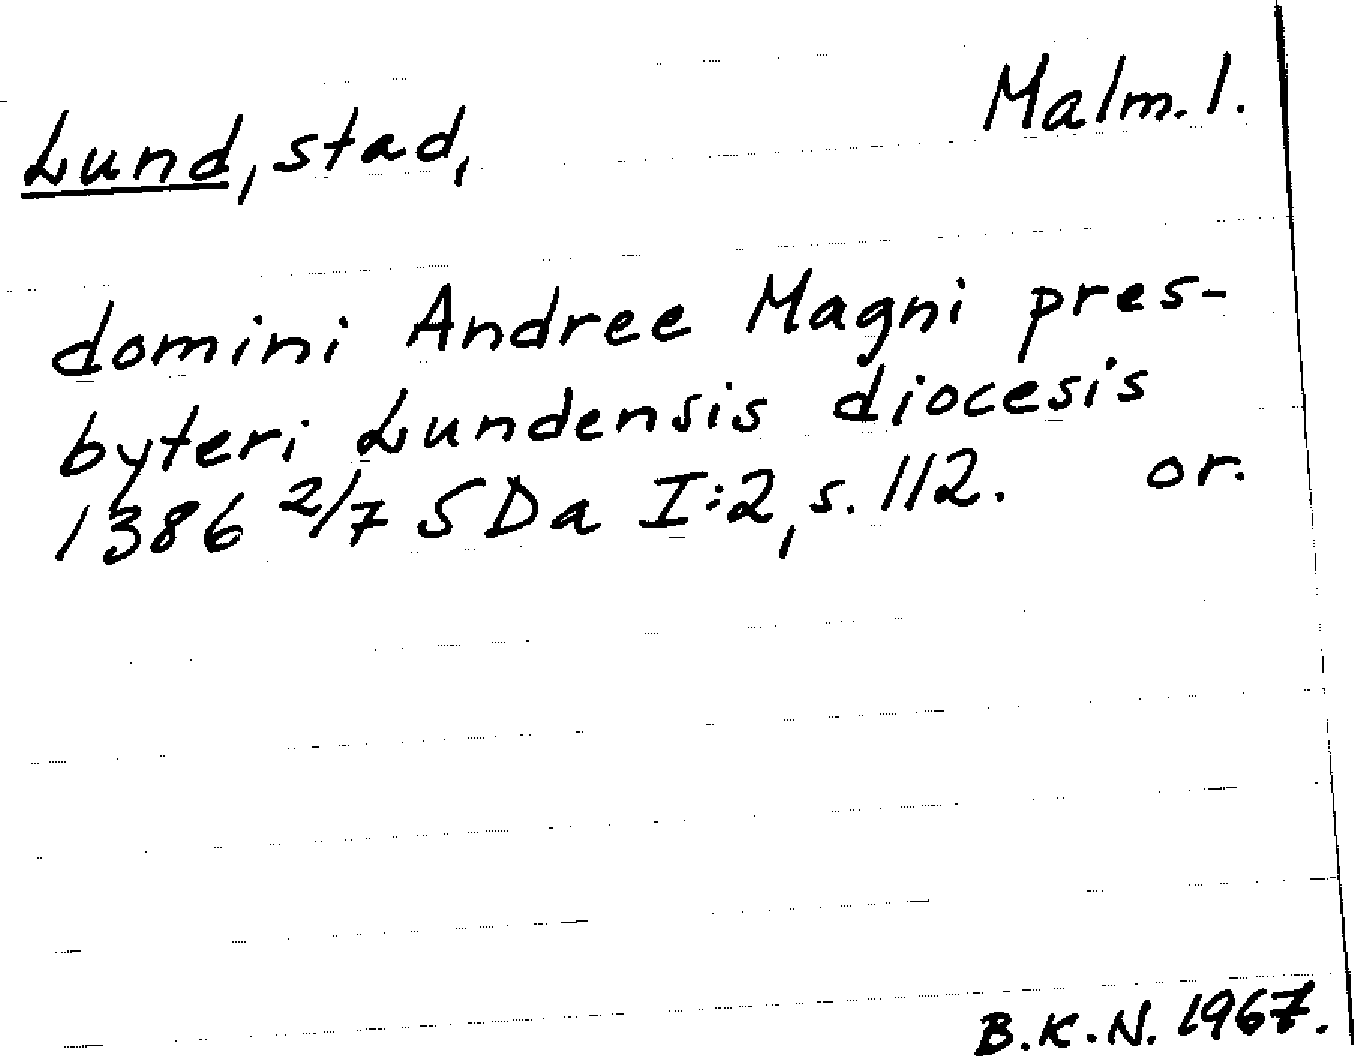 Lund, stad, Malm. l.
domini Andree Magni pres-
byteri Lundensis diocesis
1386 2/7 SDa I:2, s. 112. or.
B.K.N. 1967.